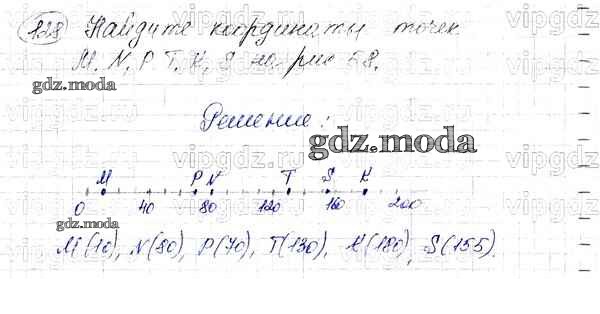 128 Найдите координаты точек
M, N, P, T, K, S на рис 58.
Решение:
gdz.moda
M P N T S K
0 40 80 120 160 200
gdz.moda
M(10), N(80), P(70), T(130), K(180), S(155).
gdz.moda